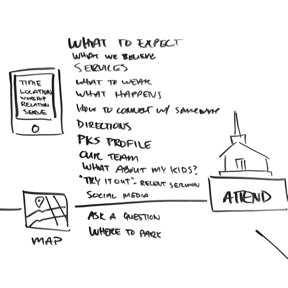 WHAT TO EXPECT
WHAT WE BELIEVE
SERVICES
WHAT TO WEAR
WHAT HAPPENS
HOW TO CONNECT W/ SOMEBODY
DIRECTIONS
PKS PROFILE
OUR TEAM
WHAT ABOUT MY KIDS?
"TRY IT OUT" - RECENT SERMON
SOCIAL MEDIA
ASK A QUESTION
WHERE TO PARK
TIME
LOCATION
WORSHIP
RELATION
SERVE
MAP
ATTEND